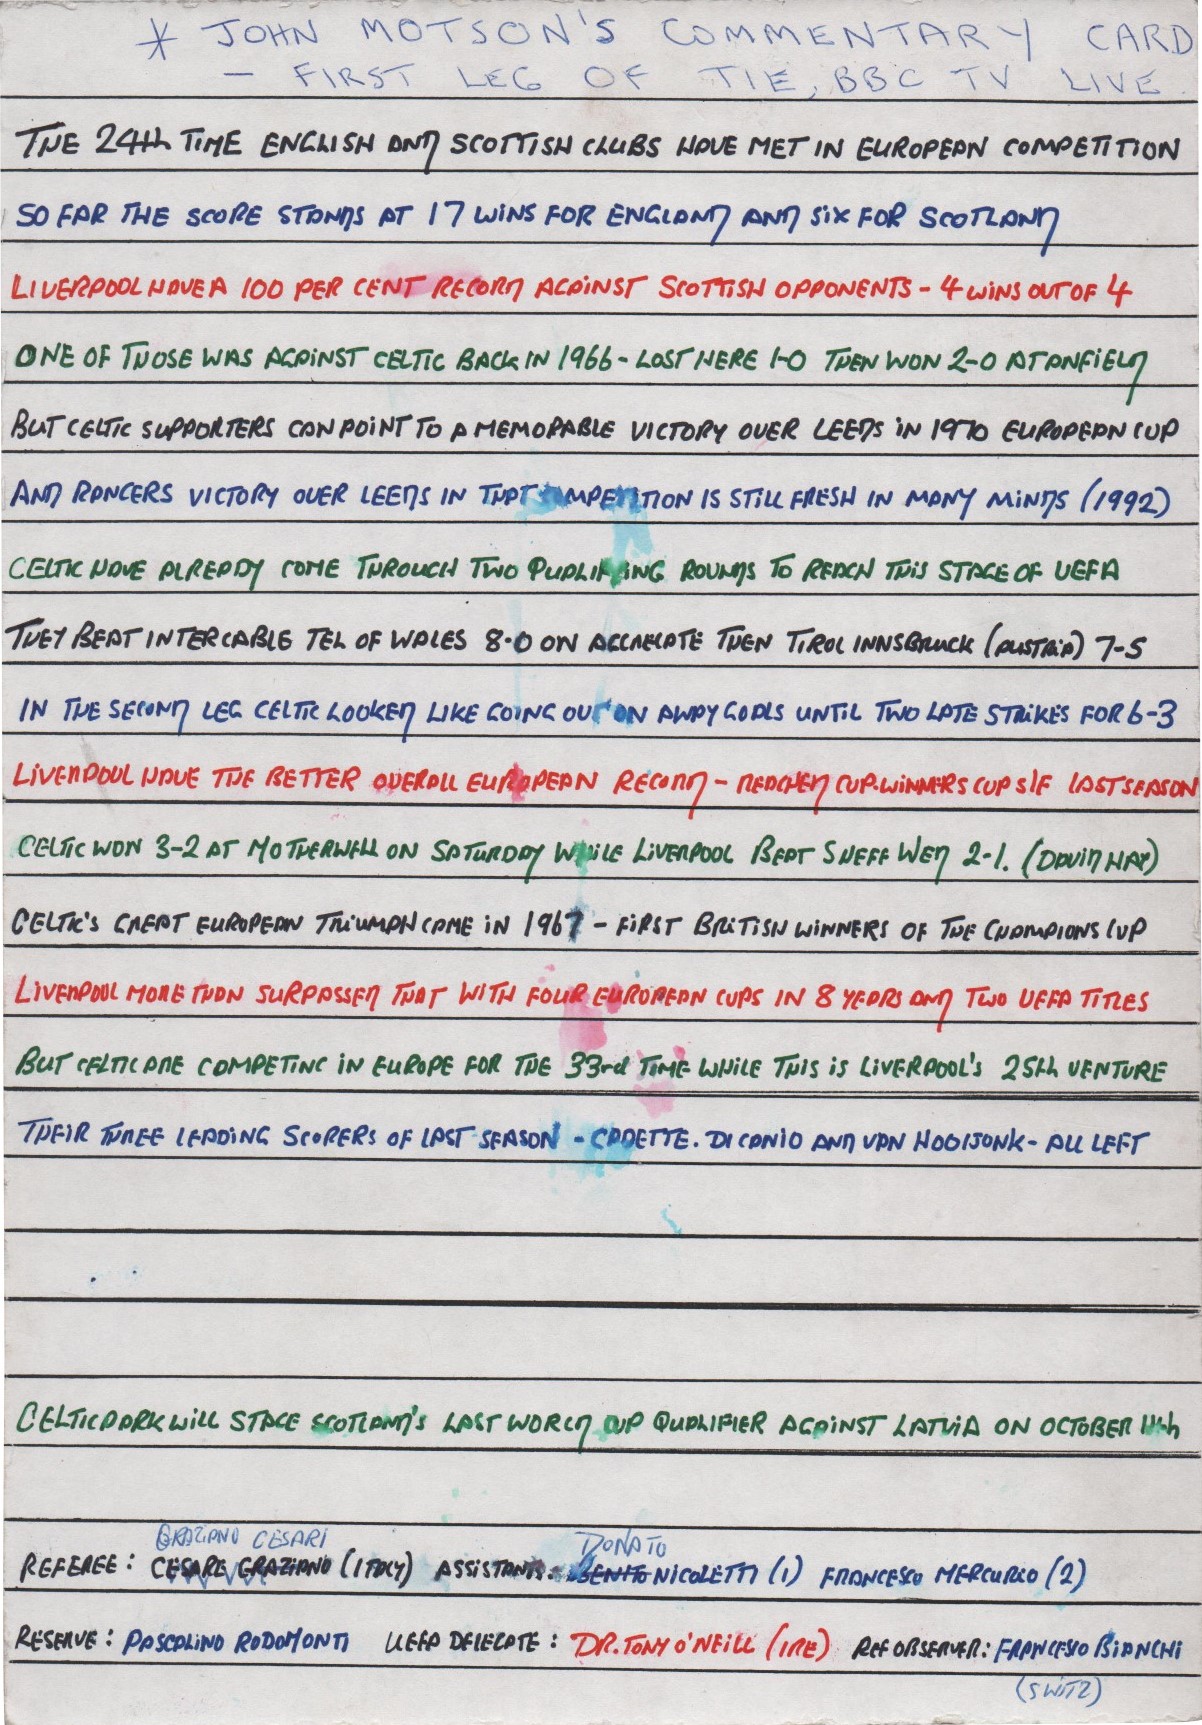 * JOHN MOTSON'S COMMENTARY CARD
- FIRST LEG OF TIE, BBC TV LIVE.
THE 24th TIME ENGLISH AND SCOTTISH CLUBS HAVE MET IN EUROPEAN COMPETITION
SO FAR THE SCORE STANDS AT 17 WINS FOR ENGLAND AND SIX FOR SCOTLAND
LIVERPOOL HAVE A 100 PER CENT RECORD AGAINST SCOTTISH OPPONENTS - 4 WINS OUT OF 4
ONE OF THOSE WAS AGAINST CELTIC BACK IN 1966 - LOST HERE 1-0 THEN WON 2-0 AT ANFIELD
BUT CELTIC SUPPORTERS CAN POINT TO A MEMORABLE VICTORY OVER LEEDS IN 1970 EUROPEAN CUP
AND RANGERS VICTORY OVER LEEDS IN THAT COMPETITION IS STILL FRESH IN MANY MINDS (1992)
CELTIC HAVE ALREADY COME THROUGH TWO QUALIFYING ROUNDS TO REACH THIS STAGE OF UEFA
THEY BEAT INTERCABLE TEL OF WALES 8-0 ON AGGREGATE THEN TIROL INNSBRUCK (AUSTRIA) 7-5
IN THE SECOND LEG CELTIC LOOKED LIKE GOING OUT ON AWAY GOALS UNTIL TWO LATE STRIKES FOR 6-3
LIVERPOOL HAVE THE BETTER OVERALL EUROPEAN RECORD - REACHED CUP-WINNERS CUP S/F LAST SEASON
CELTIC WON 3-2 AT MOTHERWELL ON SATURDAY WHILE LIVERPOOL BEAT SHEFF WED 2-1. (DAVID HAY)
CELTIC'S GREAT EUROPEAN TRIUMPH CAME IN 1967 - FIRST BRITISH WINNERS OF THE CHAMPIONS CUP
LIVERPOOL MORE THAN SURPASSED THAT WITH FOUR EUROPEAN CUPS IN 8 YEARS AND TWO UEFA TITLES
BUT CELTIC ARE COMPETING IN EUROPE FOR THE 33rd TIME WHILE THIS IS LIVERPOOL'S 25th VENTURE
THEIR THREE LEADING SCORERS OF LAST SEASON - CADETTE. DI CANIO AND VAN HOOIJONK - ALL LEFT
CELTIC PARK WILL STAGE SCOTLAND'S LAST WORLD CUP QUALIFIER AGAINST LATVIA ON OCTOBER 11th
GRAZIANO CESARI DONATO
REFEREE: CESARE GRAZIANO (ITALY) ASSISTANTS: BENITO NICOLETTI (1) FRANCESCO MERCURIO (2)
RESERVE: PASCALINO RODOMONTI UEFA DELEGATE: DR. TONY O'NEILL (IRE) REF OBSERVER: FRANCESCO BIANCHI
(SWITZ)